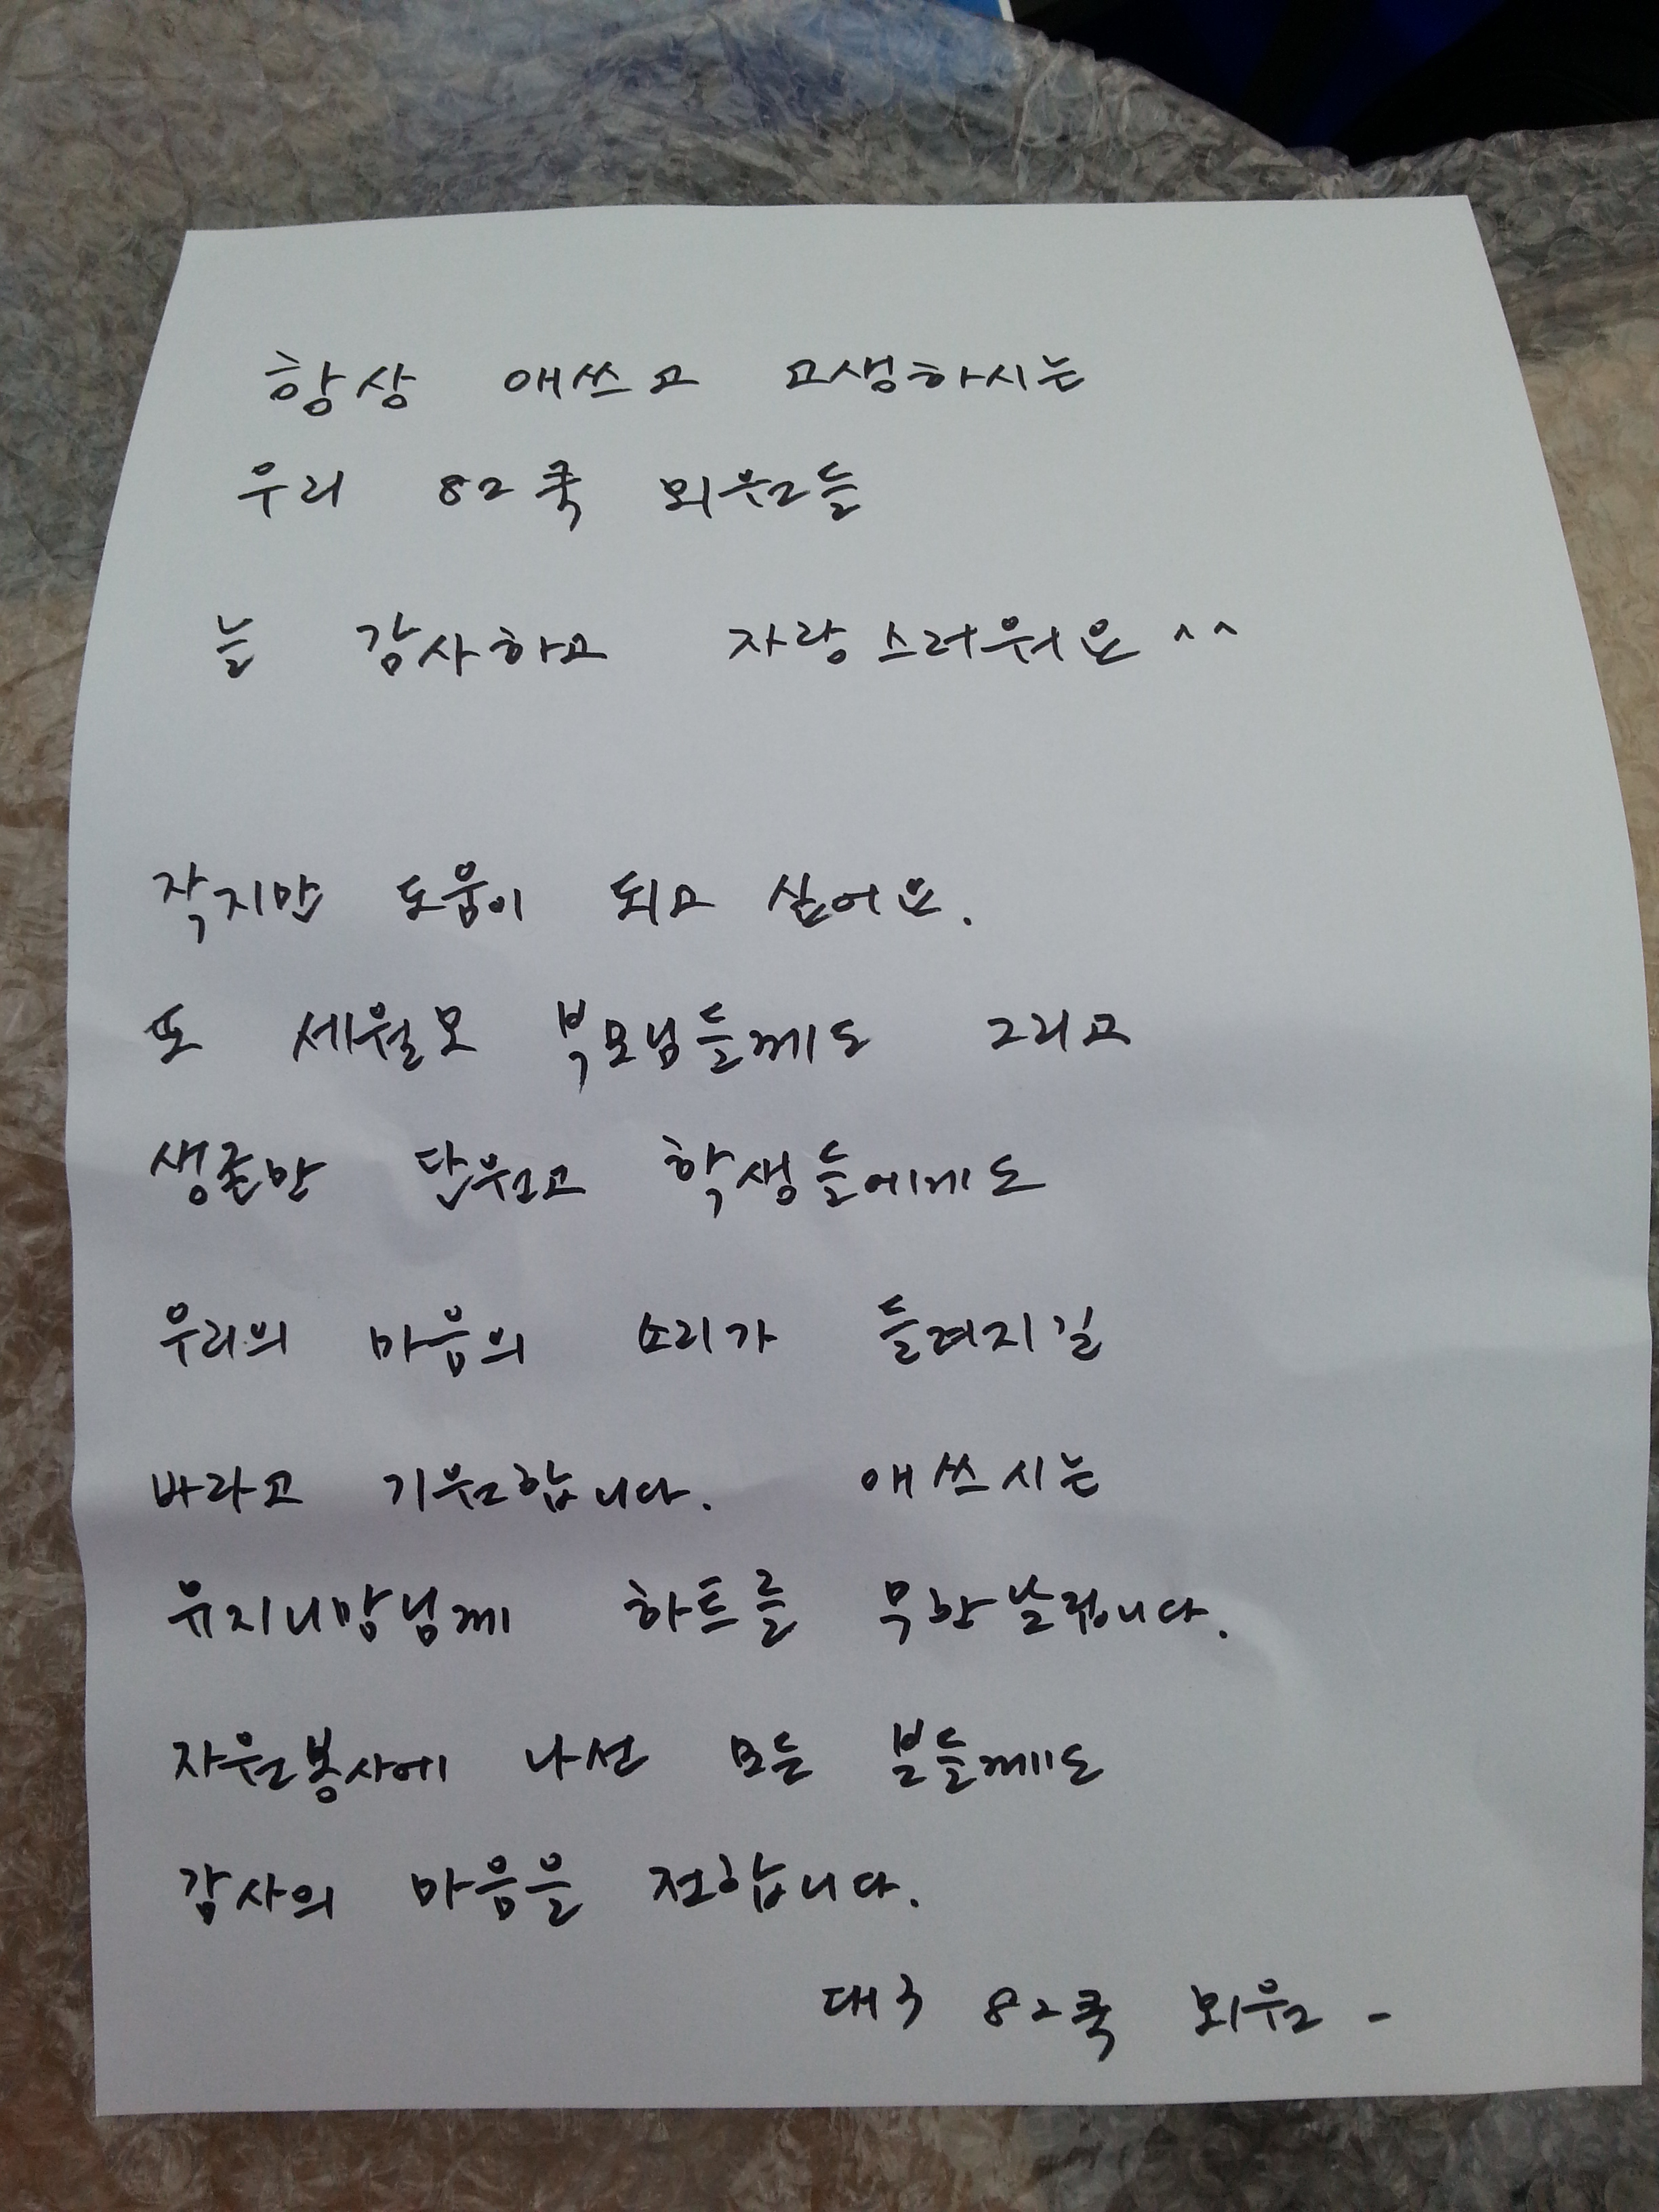 항상 애쓰고 고생하시는
우리 82쿡 회원들
늘 감사하고 자랑스러워요 ^^
작지만 도움이 되고 싶어요.
또 세월호 부모님들께도 그리고
생존한 단원고 학생들에게도
우리의 마음의 소리가 들려지길
바라고 기원합니다. 애쓰시는
유지니맘님께 하트를 무한날립니다.
자원봉사에 나선 모든 분들께도
감사의 마음을 전합니다.
대구 82쿡 회원 -